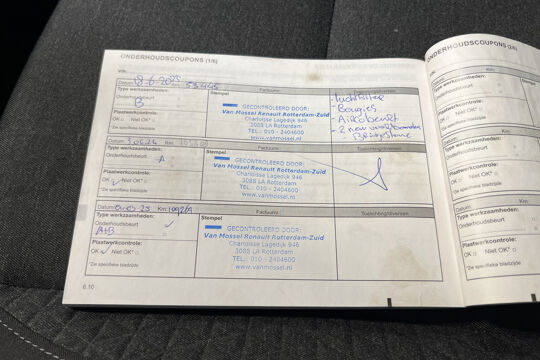 ONDERHOUDSCOUPONS (1/6)
VIN:
Datum: Km: 53445
Type werkzaamheden:
Onderhoudsbeurt
B
Plaatwerkcontrole:
OK Niet OK*
*Zie specifieke bladzijde
Factuurnr.:
Stempel
GECONTROLEERD DOOR:
Van Mossel Renault Rotterdam-Zuid
Charloisse Lagedijk 946
3088 LA Rotterdam
TEL.: 010 - 2404600
Toelichting/diversen
- Luchtfilter
- Bougies
- Aircobeurt
Datum:
Type werkzaamheden:
Onderhoudsbeurt A
Plaatwerkcontrole:
OK Niet OK*
*Zie specifieke bladzijde
Factuurnr.:
Stempel
GECONTROLEERD DOOR:
Van Mossel Renault Rotterdam-Zuid
Charloisse Lagedijk 946
3088 LA Rotterdam
TEL.: 010 - 2404600
www.vanmossel.nl
Toelichting/diversen
Datum: Km:
Type werkzaamheden:
Onderhoudsbeurt
A+B
Plaatwerkcontrole:
OK Niet OK*
*Zie specifieke bladzijde
Factuurnr.:
Stempel
GECONTROLEERD DOOR:
Van Mossel Renault Rotterdam-Zuid
Charloisse Lagedijk 946
3088 LA Rotterdam
TEL.: 010 - 2404600
www.vanmossel.nl
Toelichting/diversen
6.10
ONDERHOUDSCOUPONS (2/6)
VIN:
Datum: Km:
Type werkzaamheden:
Onderhoudsbeurt
Plaatwerkcontrole:
OK Niet OK*
*Zie specifieke bladzijde
Datum: Km:
Type werkzaamheden:
Onderhoudsbeurt
Plaatwerkcontrole:
OK Niet OK*
*Zie specifieke bladzijde
Datum: Km:
Type werkzaamheden:
Onderhoudsbeurt
Plaatwerkcontrole:
OK Niet OK*
*Zie specifieke bladzijde